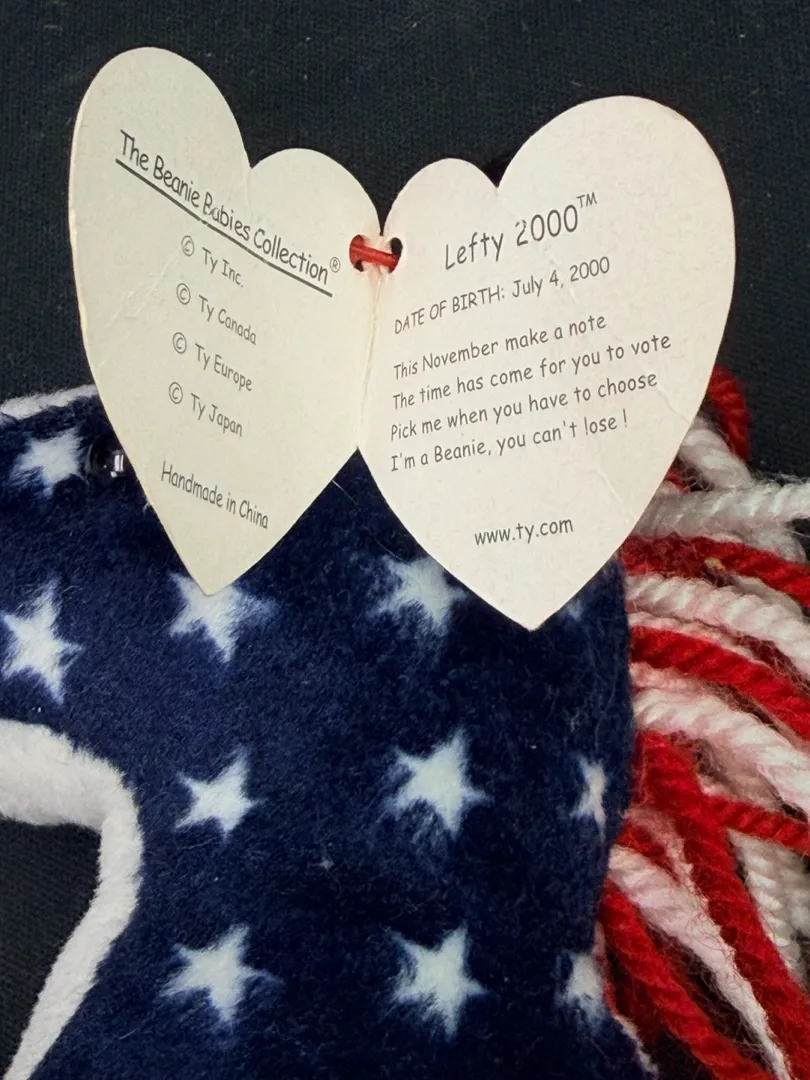 The Beanie Babies Collection®
© Ty Inc.
© Ty Canada
© Ty Europe
© Ty Japan
Handmade in China
Lefty 2000™
DATE OF BIRTH: July 4, 2000
This November make a note
The time has come for you to vote
Pick me when you have to choose
I'm a Beanie, you can't lose !
www.ty.com